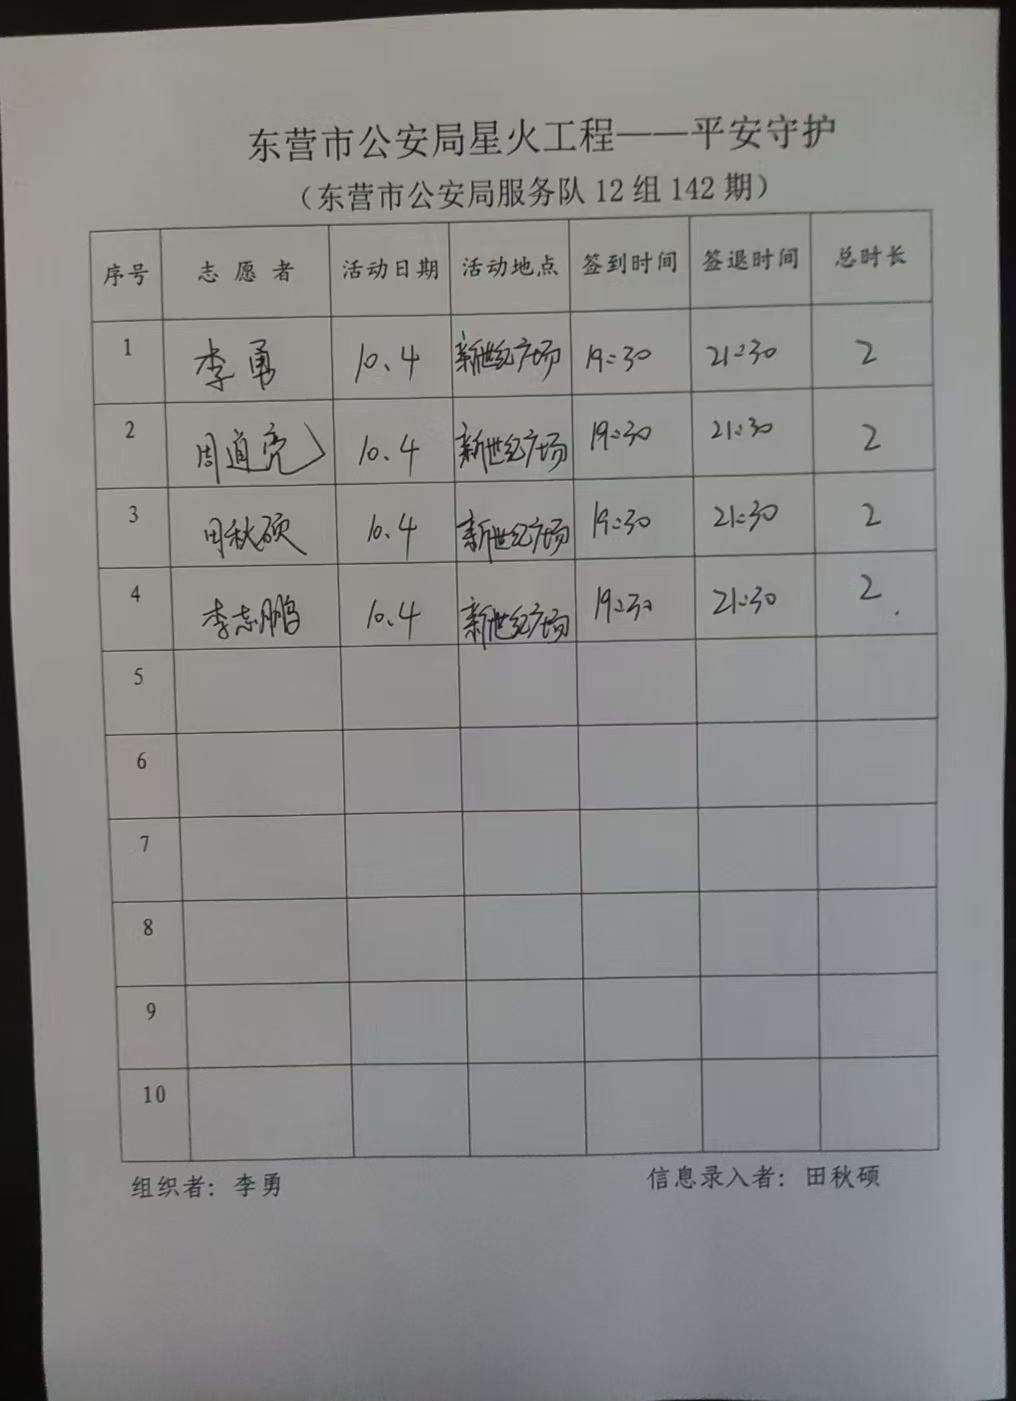 东营市公安局星火工程——平安守护
（东营市公安局服务队 12 组 142 期）
序号 志愿者 活动日期 活动地点 签到时间 签退时间 总时长
1 李勇 10.4 新世纪广场 19:30 21:30 2
2 周道亮 10.4 新世纪广场 19:30 21:30 2
3 田秋硕 10.4 新世纪广场 19:30 21:30 2
4 李志鹏 10.4 新世纪广场 19:30 21:30 2
5
6
7
8
9
10
组织者：李勇 信息录入者：田秋硕